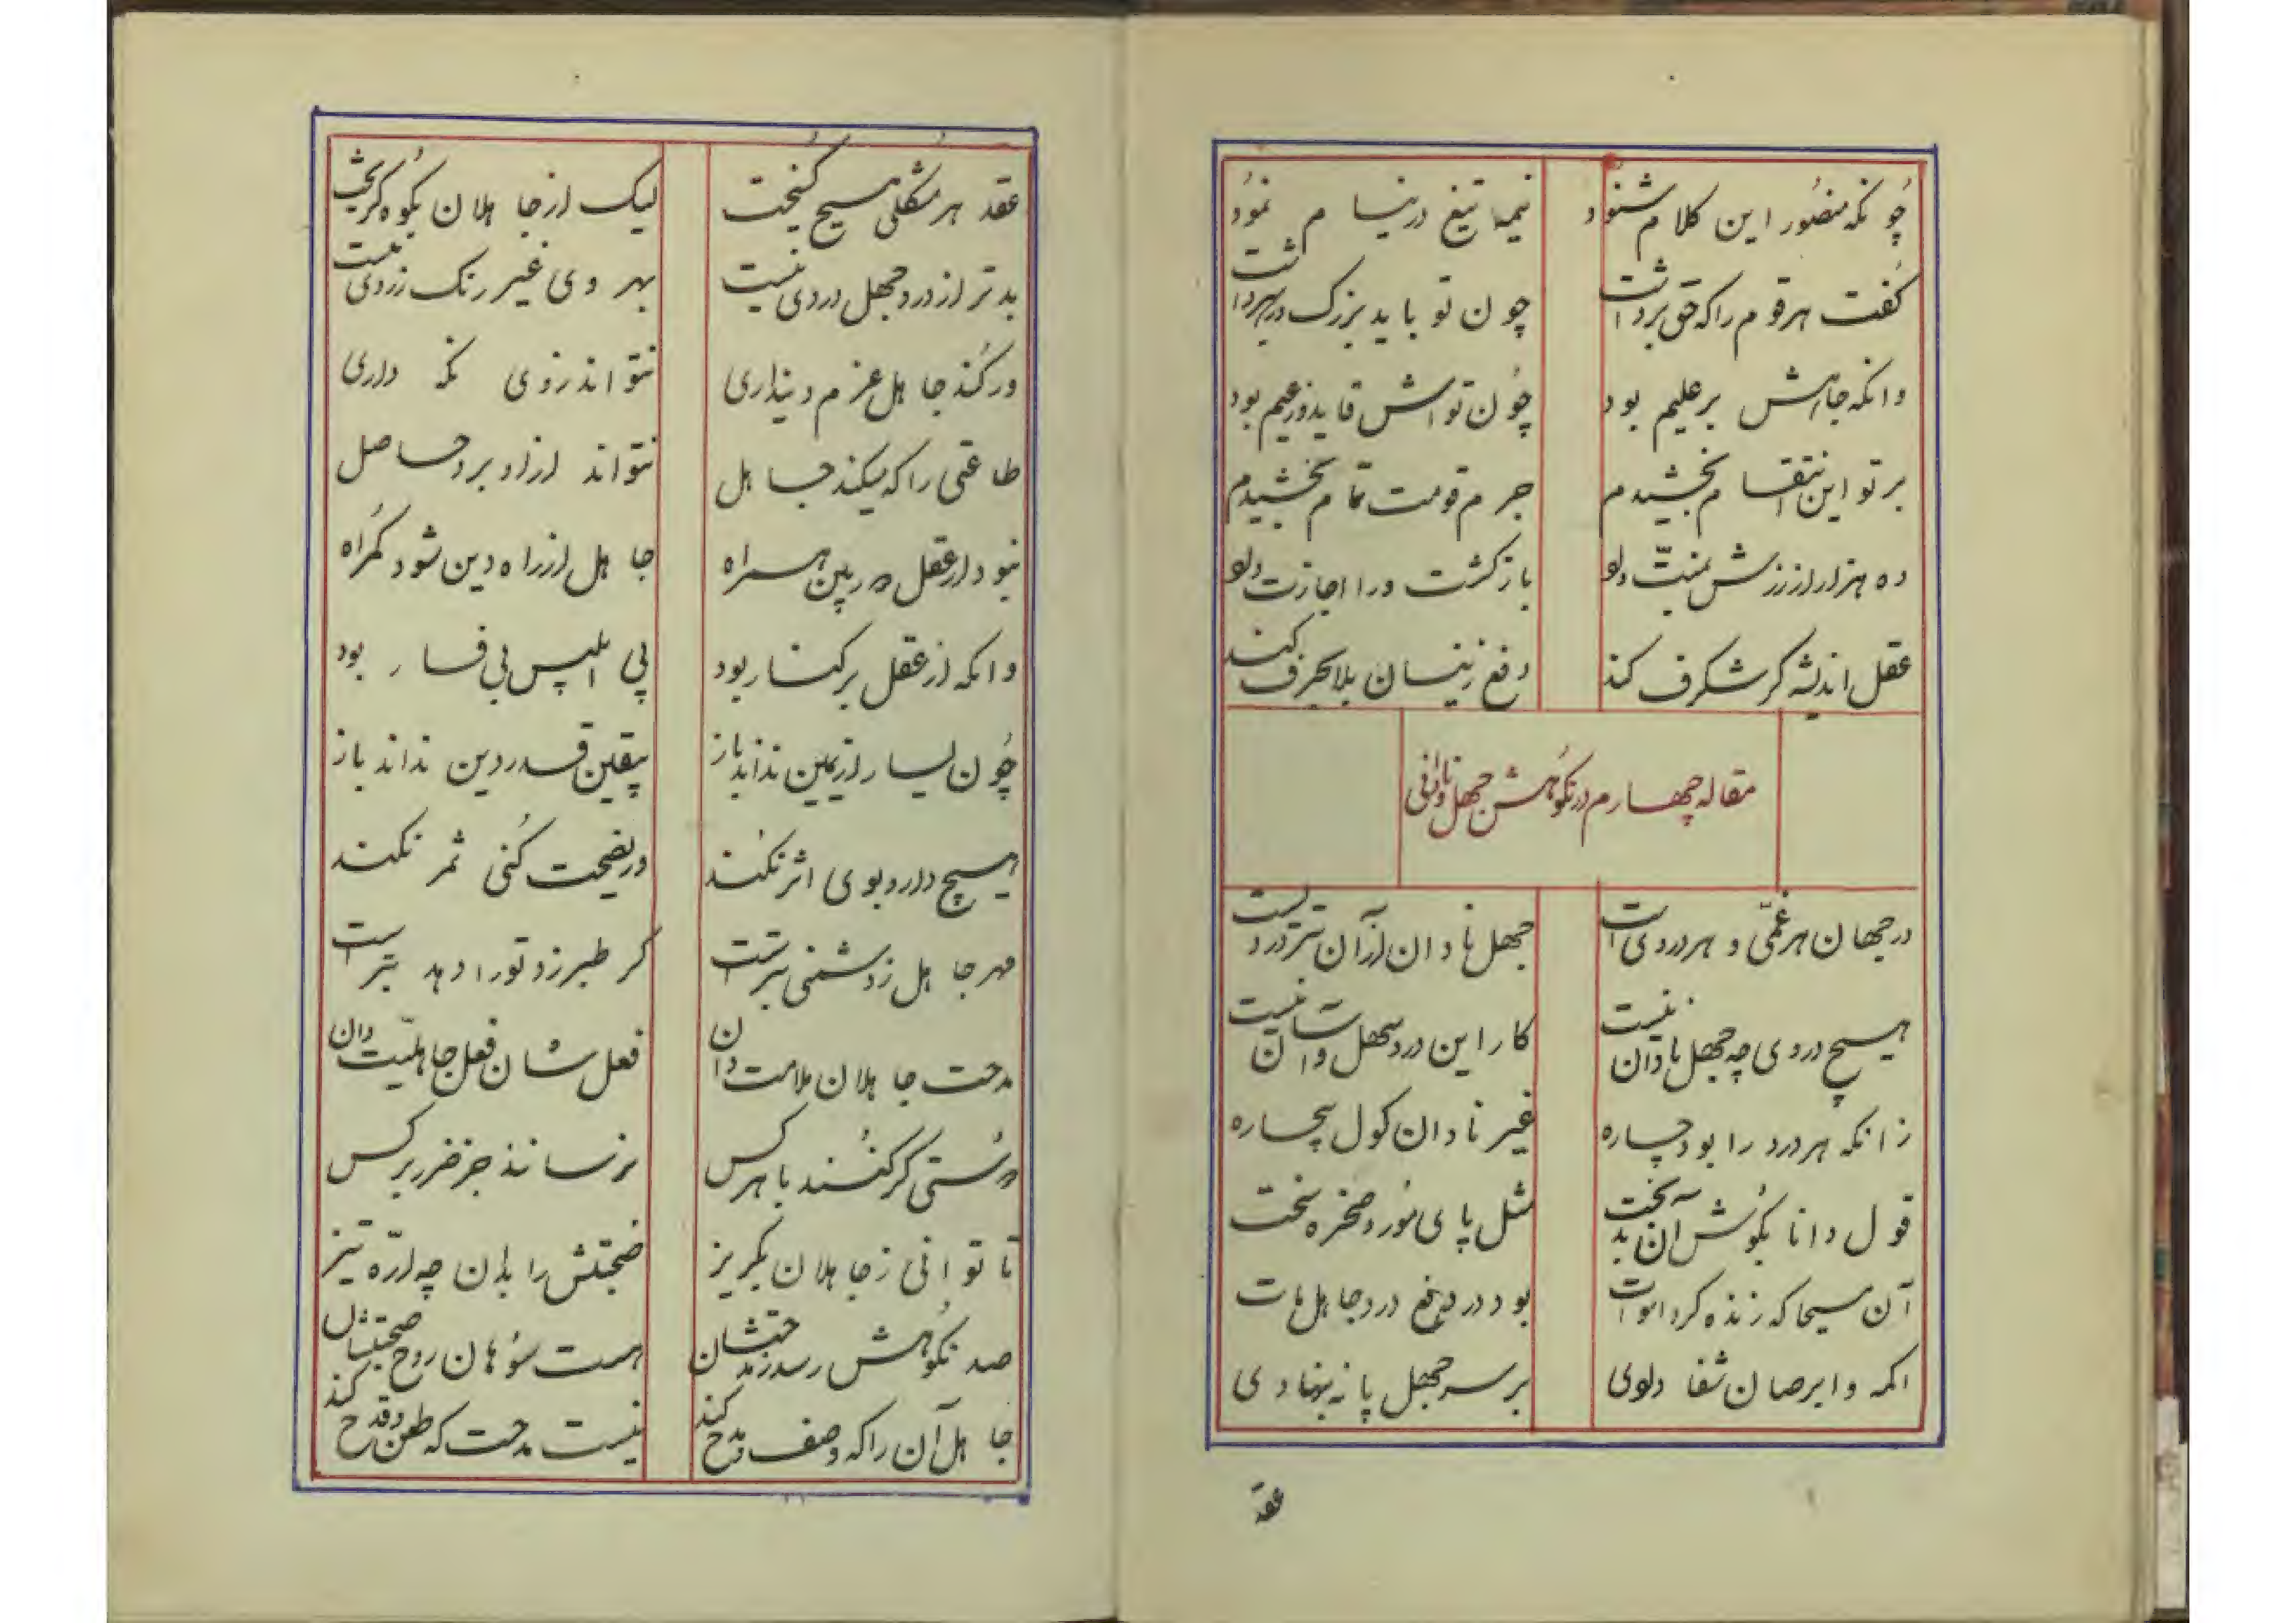 چونکه منصور این کلام شنود نیمچا تیغ در نیام نمود
گفت هر قوم را که حق برداشت چون تو باید بزرگ در سر داشت
وانکه جاهش بر علیم بود چون تواش قاید و زعیم بود
بر تو این انتقام بخشیدم جرم قومت تمام بخشیدم
ده هزار از زرش بمنیت داد بازگشت ورا اجازت داد
عقل اندیشه گر شگرف کند دفع زینسان بلا بحرف کند
مقاله چهارم در نکوهش جهل و نادانی
در جهان هر غمی و هر دردی است جهل نادان از آن بتر دردیست
هیچ دردی چه جهل نادان نیست کار این درد سهل و آسان نیست
زانکه هر درد را بود چاره غیر نادان کول بیچاره
قول دانا بگوش آن بدبخت مثل پای مور و صخره سخت
آن مسیحا که زنده کرد اموات بود در دفع درد جاهل مات
اکمه و ابرصان شفا دادی بر سر جهل پا نه بنهادی
عقد
عقد هر مشکلی مسیح گسیخت لیک از جاهلان بکوه گریخت
بدتر از درد جهل دردی نیست بهر وی غیر رنگ زردی نیست
ور کند جاهل عزم دینداری نتواند زوی نگه داری
طاعتی را که میکند جاهل نتواند از او برد حاصل
نبود ار عقل در پیت همراه جاهل از راه دین شود گمراه
وانکه از عقل بر کنار بود پی ابلیس بی فسار بود
چون یسار از یمین نداند باز بیقین قدر دین نداند باز
هیچ دارو بوی اثر نکند ور نصیحت کنی ثمر نکند
مهر جاهل ز دشمنی بتر است گر طبرزد تو را دهد تبر است
مدحت جاهلان ملامت دان فعلشان فعل جاهلیت دان
دوستی گر کنند با هر کس نرسانند جز ضرر بر کس
تا توانی ز جاهلان بگریز صحبتش را بدان چه ارّه تیز
صد نکوهش رسد ز مدحتشان هست سوهان روح صحبتشان
جاهل آن را که وصف و مدح کند نیست مدحت که طعن و قدح کند